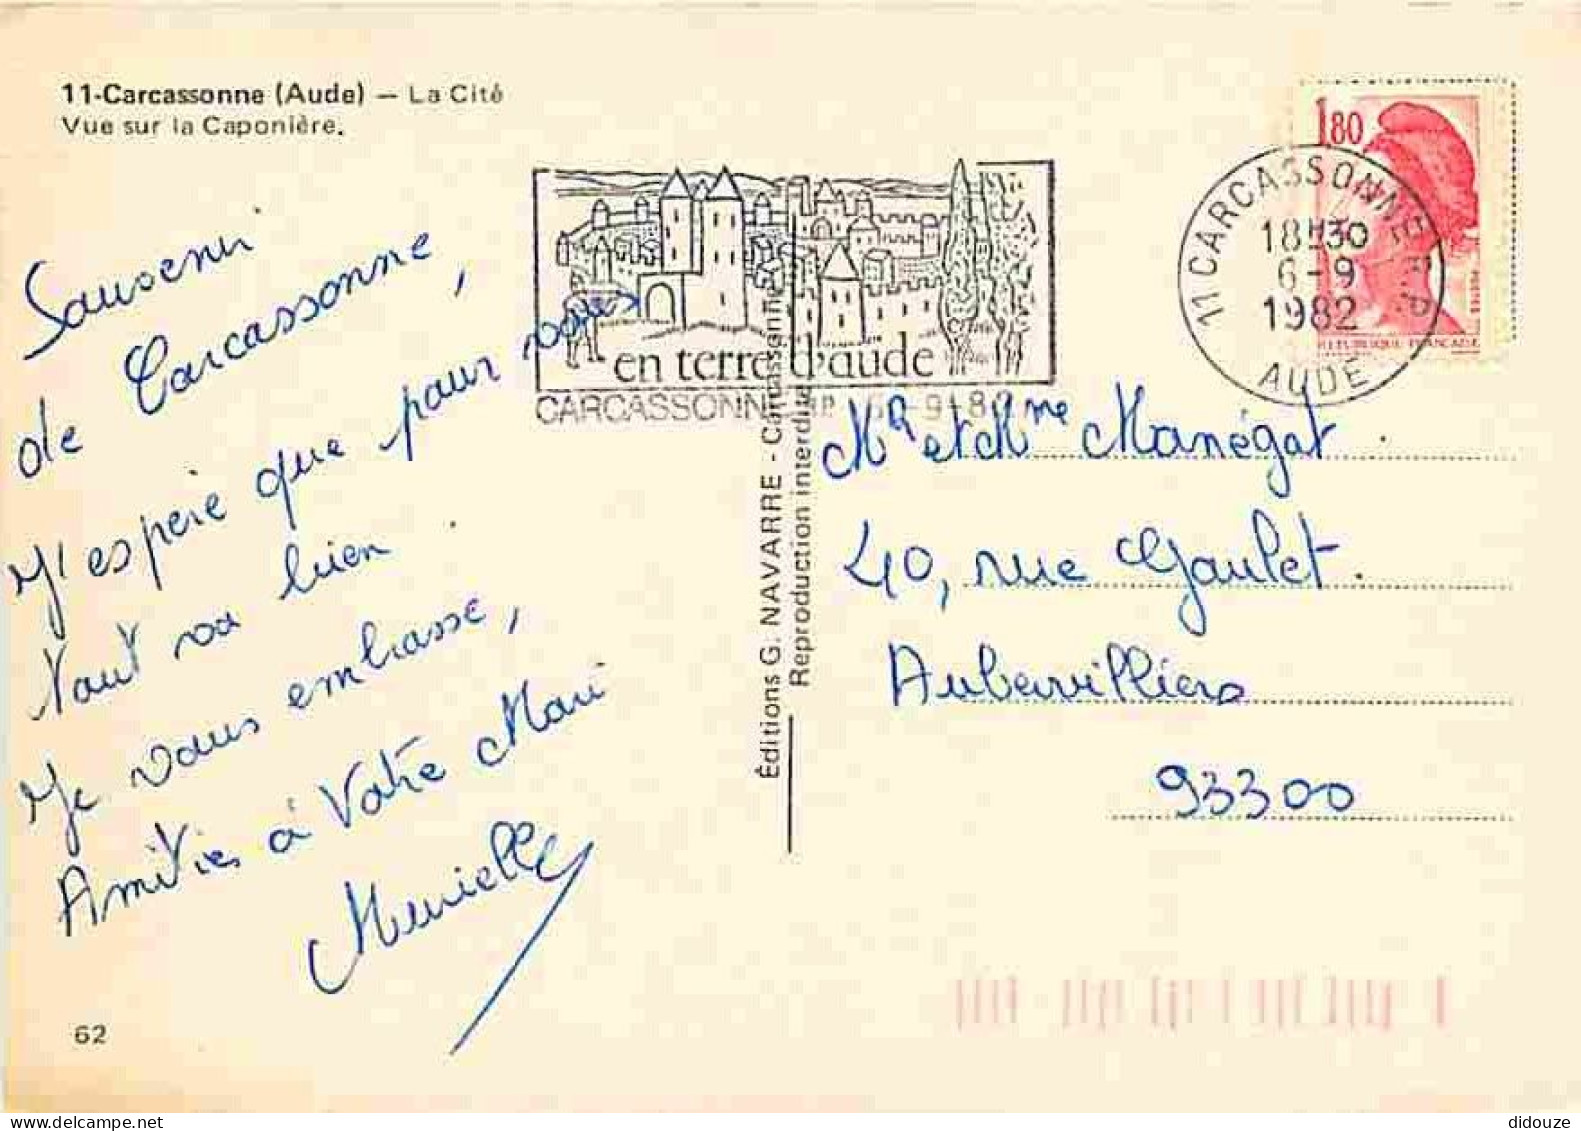 11-Carcassonne (Aude) — La Cité
Vue sur la Caponière.
Souvenir
de Carcassonne,
J'espère que pour vous
tout va bien.
Je vous embrasse,
Amitiés à Votre Mari
Murielle
62
en terre d'aude
CARCASSONNE RP 6-9-82
Éditions G. NAVARRE - Carcassonne
Reproduction interdite
1,80
REPUBLIQUE FRANCAISE
11 CARCASSONNE R.P.
18H30
6-9
1982
AUDE
Mr et Mme Manégat.
40, rue Gaulet.
Aubervilliers
93300
didouze